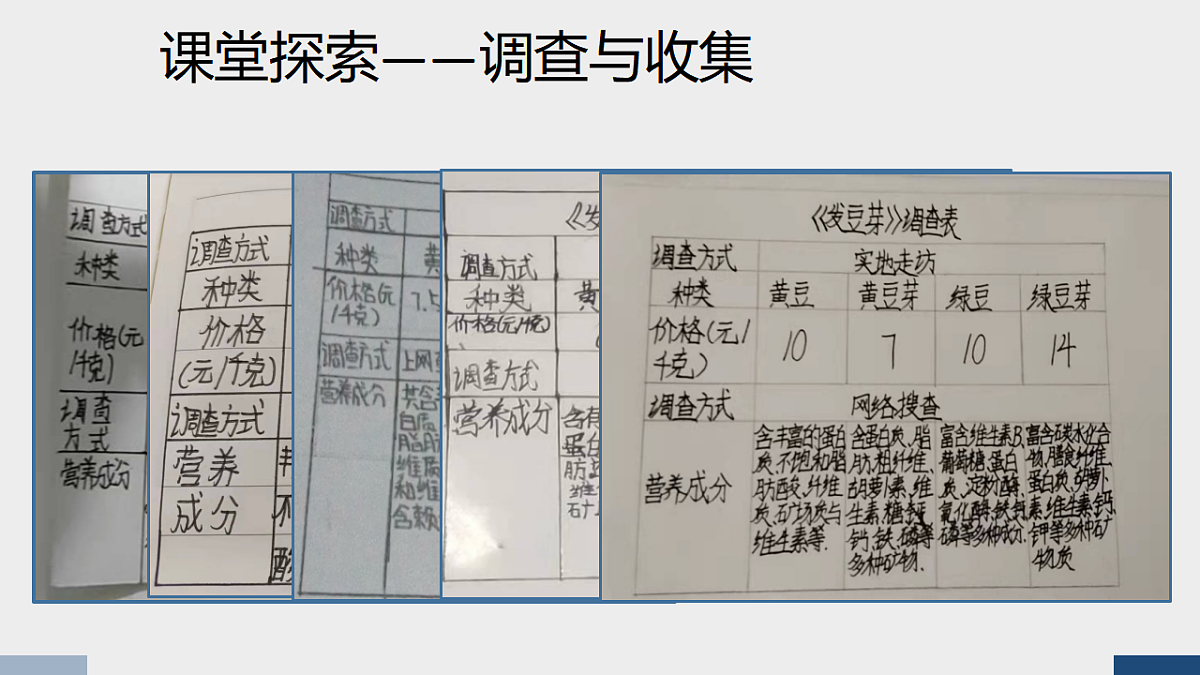 课堂探索——调查与收集
调查方式
种类
价格(元
/千克)
调查
方式
营养成分
调查方式
种类
价格
(元/千克)
调查方式
营养
成分
调查方式
种类
价格(元
/千克)
7.5
调查方式
上网
营养成分
共含
白质
脂肪
维质
和维
含赖
《发
调查方式
种类
黄
价格(元/千克)
调查方式
营养成分
含有
蛋白
肪
维
矿
《发豆芽》调查表
调查方式 实地走访
种类 黄豆 黄豆芽 绿豆 绿豆芽
价格(元/
千克) 10 7 10 14
调查方式 网络搜查
营养成分
含丰富的蛋白
质、不饱和脂
肪酸、纤维
质、矿物质与
维生素等.
含蛋白质、脂
肪、粗纤维、
胡萝卜素、维
生素、糖、
钙、铁、磷等
多种矿物.
富含维生素B、
葡萄糖、蛋白
质、淀粉酶、
氧化酶、铁、钙、
磷等多种成分.
富含碳水化合
物、膳食纤维、
蛋白质、胡萝卜
素、维生素、钙、
钾等多种矿
物质